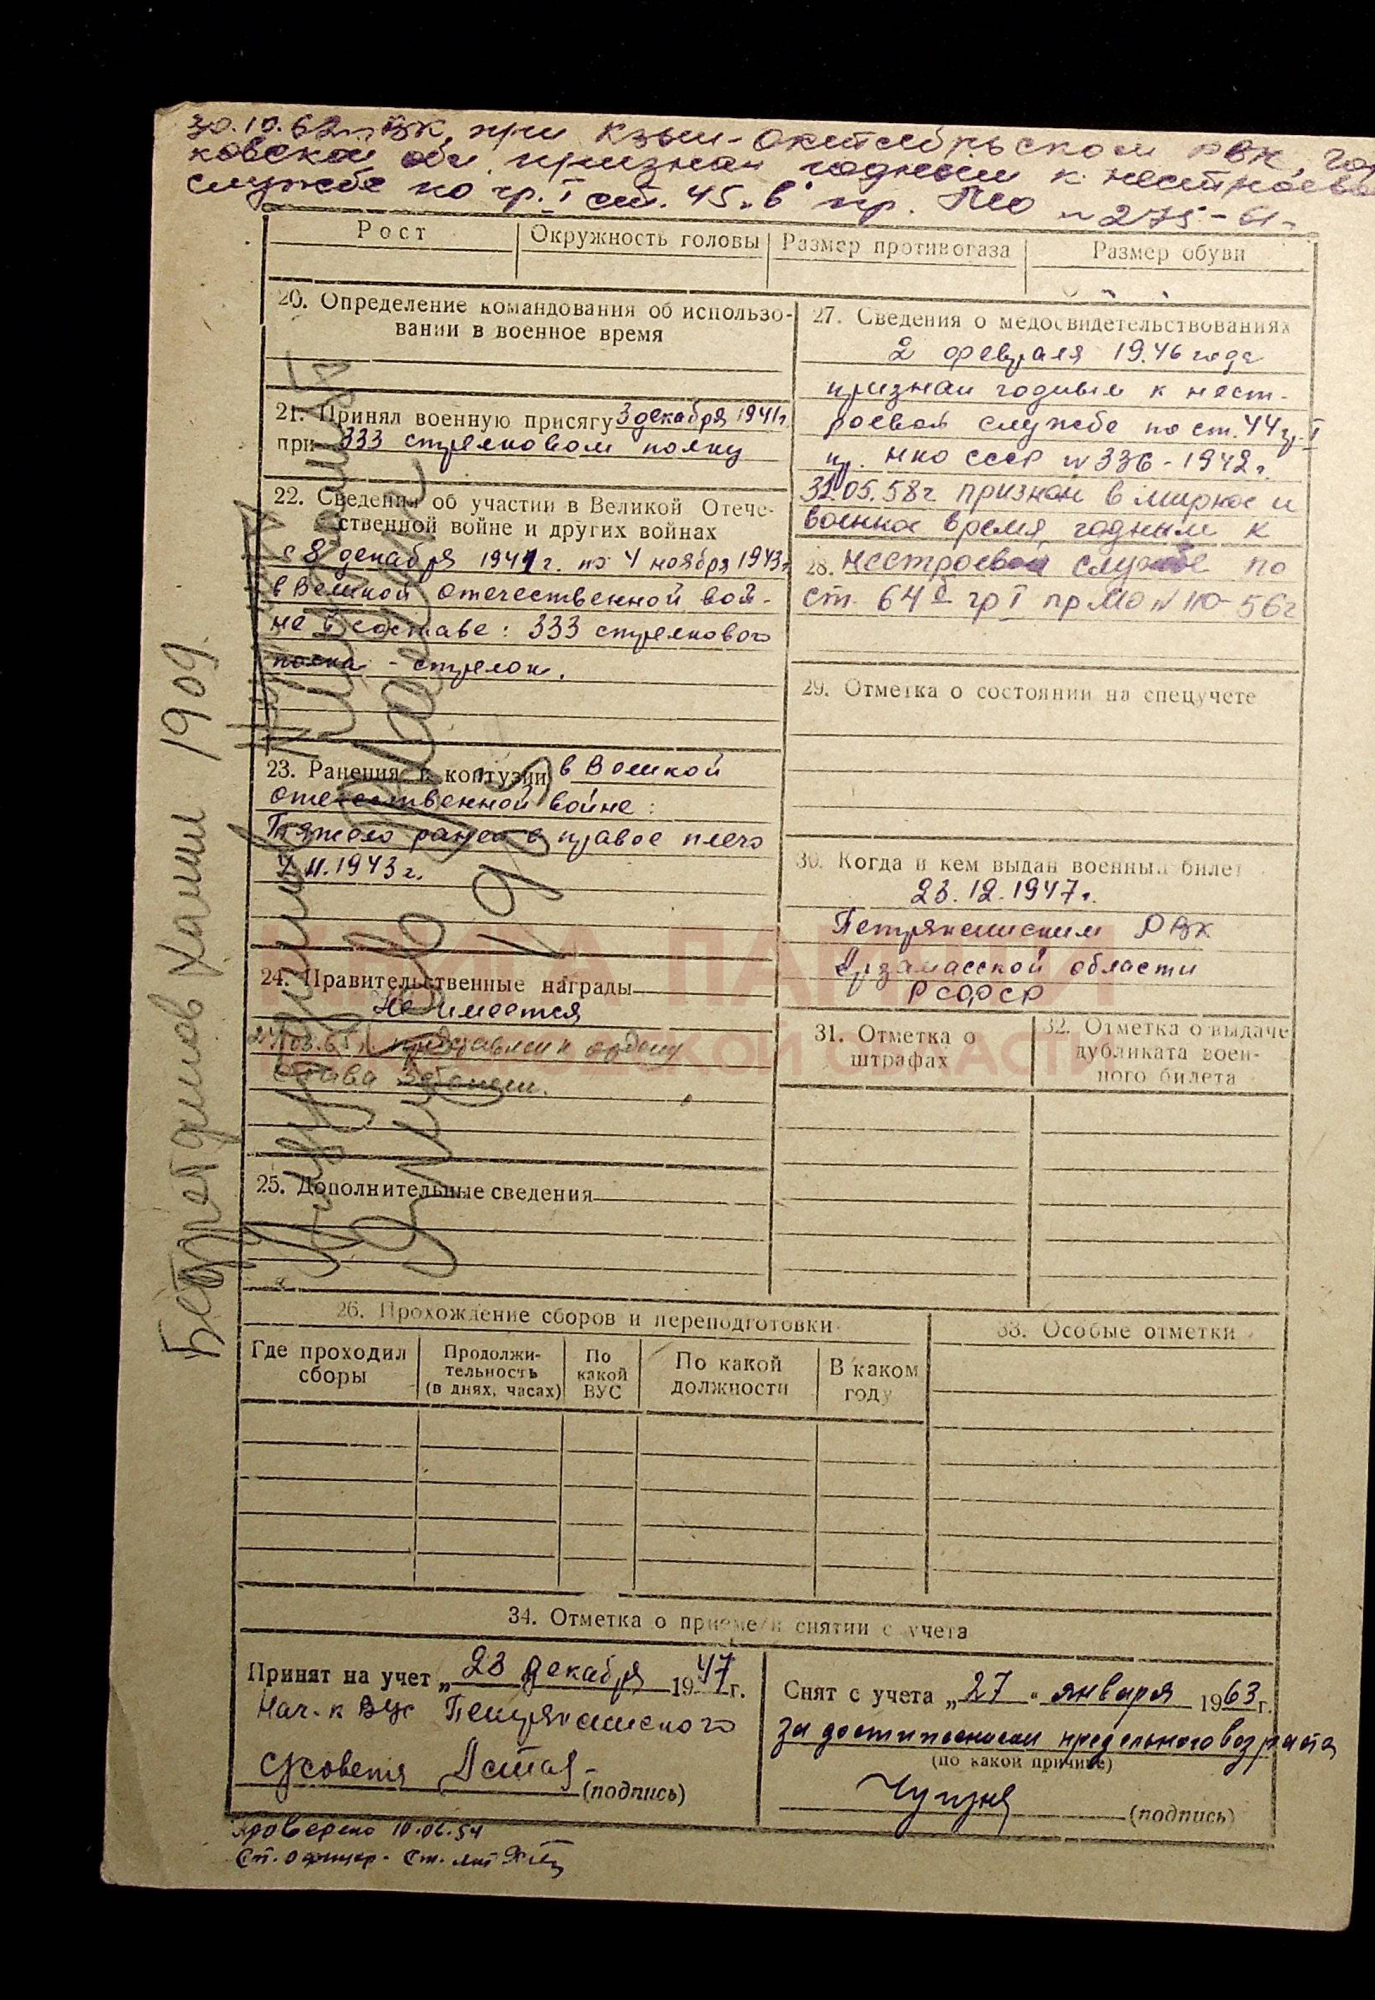 30.10.62г. ВК при Кзыл-Октябрьском РВК, Гор
ковской обл признан годным к нестроевой
службе по гр. I ст. 45 "в" пр. МО № 275-61г
Рост
Окружность головы
Размер противогаза
Размер обуви
20. Определение командования об использо-
вании в военное время
21. Принял военную присягу 3 декабря 1941г.
при 333 стрелковом полку
22. Сведения об участии в Великой Отече-
ственной войне и других войнах
с 8 декабря 1941г. по 4 ноября 1943г.
в Великой Отечественной вой-
не в составе: 333 стрелкового
полка - стрелок.
23. Ранения и контузии в Великой
отечественной войне:
Тяжело ранен в правое плечо
4.11.1943г.
24. Правительственные награды
Не имеется
представлен к ордену
Слава
25. Дополнительные сведения
27. Сведения о медосвидетельствованиях
2 февраля 1946 года
признан годным к нест-
роевой службе по ст. 44 гр. I
пр. НКО СССР № 336-1942г.
31.05.58г признан в мирное и
военное время годным к
28. нестроевой службе по
ст. 64б гр I пр МО № 110-56г
29. Отметка о состоянии на спецучете
30. Когда и кем выдан военный билет
23.12.1947г.
Петряксинским РВК
Арзамасской области
РСФСР
31. Отметка о
штрафах
32. Отметка о выдаче
дубликата воен-
ного билета
26. Прохождение сборов и переподготовки
Где проходил
сборы
Продолжи-
тельность
(в днях, часах)
По
какой
ВУС
По какой
должности
В каком
году
33. Особые отметки
34. Отметка о приеме и снятии с учета
Принят на учет „23 декабря 1947г.
Нач-к ВУС Петряксинского
(подпись)
Снят с учета „27" января 1963г.
за достижением предельного возраста
(по какой причине)
(подпись)
Проверено 10.06.54
Ст. офицер - Ст. лит
Бедретдинов Хамил 1909
КНИГА ПАМЯТИ
НИЖЕГОРОДСКОЙ ОБЛАСТИ